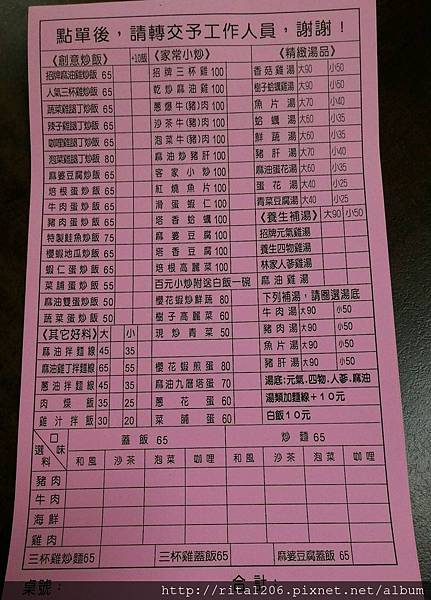 點單後，請轉交予工作人員，謝謝！
《創意炒飯》 +10飯
招牌麻油雞炒飯 65
人氣三杯雞炒飯 65
蔬菜雞球丁炒飯 65
辣子雞球丁炒飯 65
咖哩雞球丁炒飯 65
泡菜雞球丁炒飯 80
麻婆豆腐炒飯 65
培根蛋炒飯 65
牛肉蛋炒飯 65
豬肉蛋炒飯 65
特製鮭魚炒飯 75
櫻蝦地瓜炒飯 65
蝦仁蛋炒飯 65
菜脯蛋炒飯 55
麻油雙蛋炒飯 50
蔬菜蛋炒飯 50
《其它好料》 大 小
麻油拌麵線 45 35
麻油雞丁拌麵線 65 55
蔥油拌麵線 45 35
肉燥飯 35 25
雞汁拌飯 30 20
《家常小炒》
招牌三杯雞 100
乾炒麻油雞 100
蔥爆牛(豬)肉 100
沙茶牛(豬)肉 100
泡菜牛(豬)肉 100
麻油炒豬肝 100
客家小炒 100
紅燒魚片 100
滑蛋蝦仁 100
塔香蛤蠣 100
麻婆豆腐 100
塔香豆腐 100
培根高麗菜 100
百元小炒附送白飯一碗
櫻花蝦炒鮮蔬 80
樹子高麗菜 60
現炒青菜 50
櫻花蝦煎蛋 80
麻油九層塔蛋 70
蔥花蛋 60
菜脯蛋 60
《精緻湯品》
香菇雞湯 大90 小50
樹子蛤蠣雞湯 大90 小50
魚片湯 大70 小40
蛤蠣湯 大60 小35
鮮蔬湯 大60 小35
豬肝湯 大70 小40
麻油蛋花湯 大60 小35
蛋花湯 大40 小25
青菜豆腐湯 大40 小25
《養生補湯》 大90 小50
招牌元氣雞湯
養生四物雞湯
林家人蔘雞湯
麻油雞湯
下列補湯，請圈選湯底
牛肉湯 大90 小50
豬肉湯 大90 小50
魚片湯 大90 小50
豬肝湯 大90 小50
湯底:元氣.四物.人蔘.麻油
湯類加麵線+10元
白飯10元
口味 選料 蓋飯 65 炒麵 65
和風 沙茶 泡菜 咖哩 和風 沙茶 泡菜 咖哩
豬肉
牛肉
海鮮
雞肉
三杯雞炒麵65 三杯雞蓋飯65 麻婆豆腐蓋飯 65
桌號： 合計：
http://rita1206.pixnet.net/album